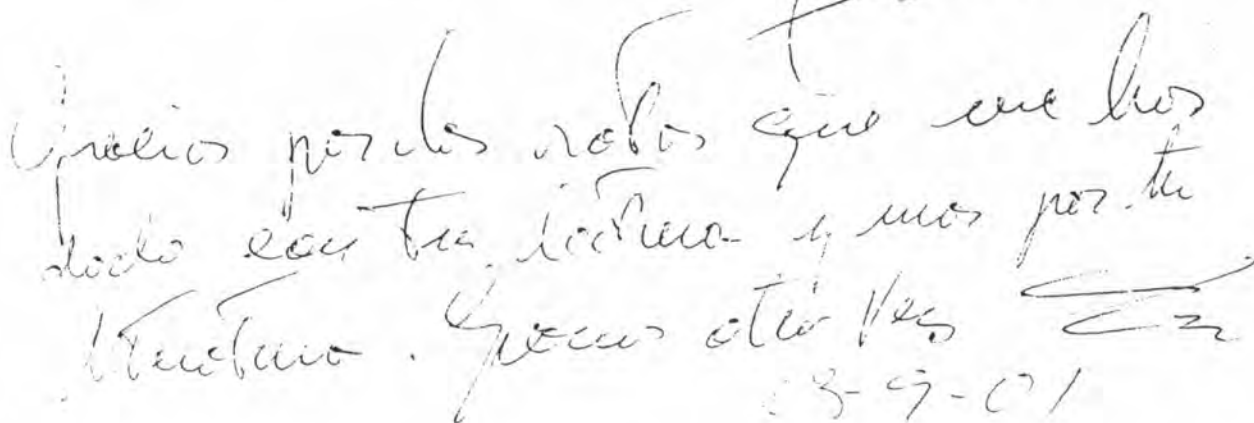 Gracias por los ratos que me has
dado con tu lectura y mas por tu
literatura. Gracias otra vez
3-9-01